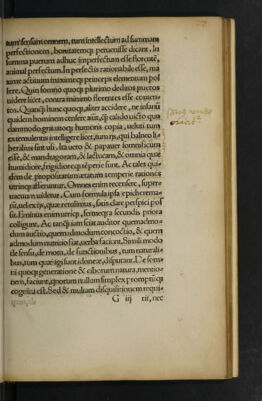 tum sensum omnem, tum intellectum ad summam
perfectionem, bonitatemque peruenisse dicant. In
summa puerum adhuc imperfectum esse florentē,
animal perfectum. In perfectis rationabile esse, ma
xime actiuum maximeque principem elementum pol
lere. Quin somno quoque plurimo deditos pueros
uidere licet, contra minimo florentes esse conten
tos. Quanque hunc quoque, alter accidere, ne insanū
quidem hominem censere aiut,
dammodo gratuitoque humoris copia, uideri tum
ex temulentis intelligere licet, tum ijs, qui balneo li
beralius sint usi, ita uero & papauer somnificum
esse, & mandragoram, & lactucam, & omnia quæ
humidiore, frigidioreque temperie sunt. Ac tales qui
dem de propositarum ætatum temperie rationes
utrinque afferuntur. Omnes enim recensere, super
uacuum uidetur. Cum formula ipsa
sit, uel ex ijs, quæ retulimus, satis clare perspici pos
sit. Eminus enim utrique, sermeque a secundis priora
colligunt. Ac tanquam iam sciat auditor quemadmo
dum auctio, quemadmodum concoctio, & quem
admodum nutritio fiat, uerba faciunt. Simili modo
de sensu, de motu, de functionibus, tum naturali
bus, tum quæ agi sunt idoneæ, disputant. De som
ni quoque generatione & ciborum natura, mentio
nem, faciunt, quorum nullum simplex promptūque
cognitu est. Sed & multam disquisitionem requi
G iij rit, nec